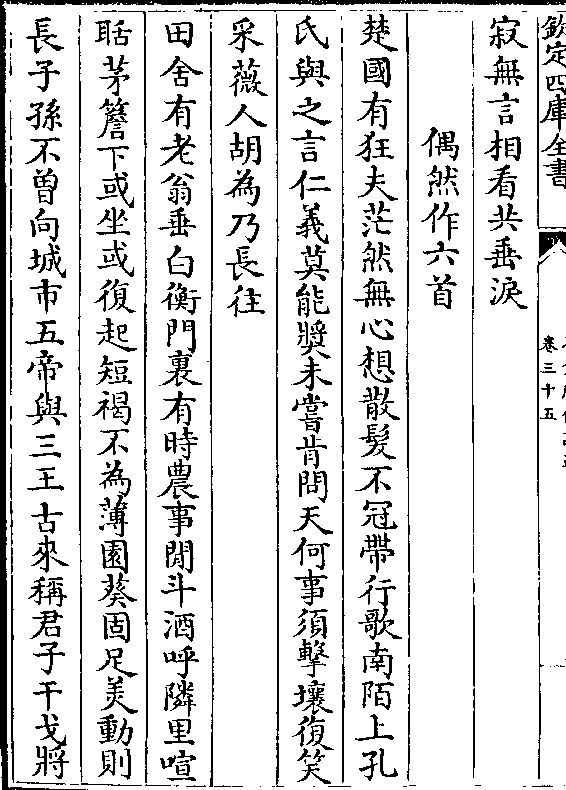 欽定四庫全書
卷三十五
寂無言相看共垂淚
偶然作六首
楚國有狂夫茫然無心想散髮不冠帶行歌南陌上孔
氏與之言仁義莫能奬未嘗肯問天何事須擊壤復笑
采薇人胡為乃長往
田舍有老翁垂白衡門裏有時農事閒斗酒呼隣里喧
聒茅簷下或坐或復起短褐不為薄園葵固足美動則
長子孫不曽向城市五帝與三王古來稱君子干戈將